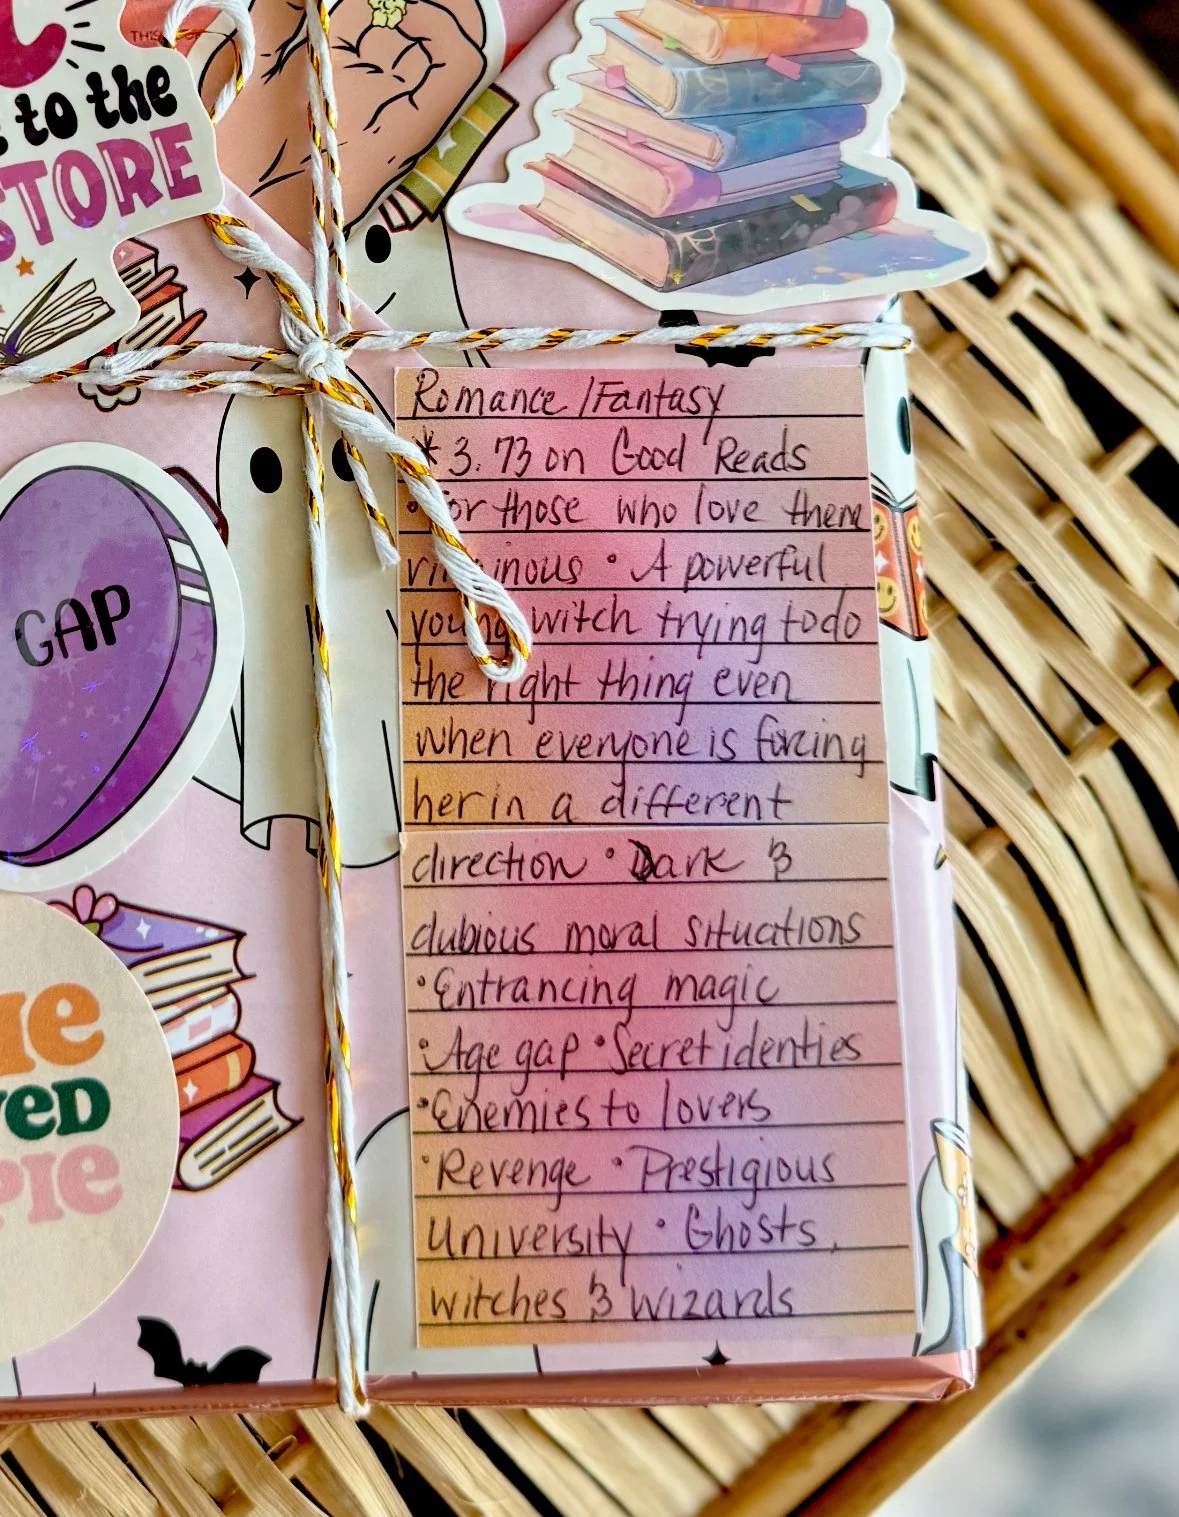 THIS
to the
STORE
GAP
Romance /Fantasy
* 3.73 on Good Reads
• For those who love them
• A powerful
young witch trying to do
the right thing even
when everyone is forcing
her in a different
direction • Dark &
dubious moral situations
• Entrancing magic
• Age gap • Secret identies
• Enemies to lovers
• Revenge • Prestigious
University • Ghosts,
witches & Wizards